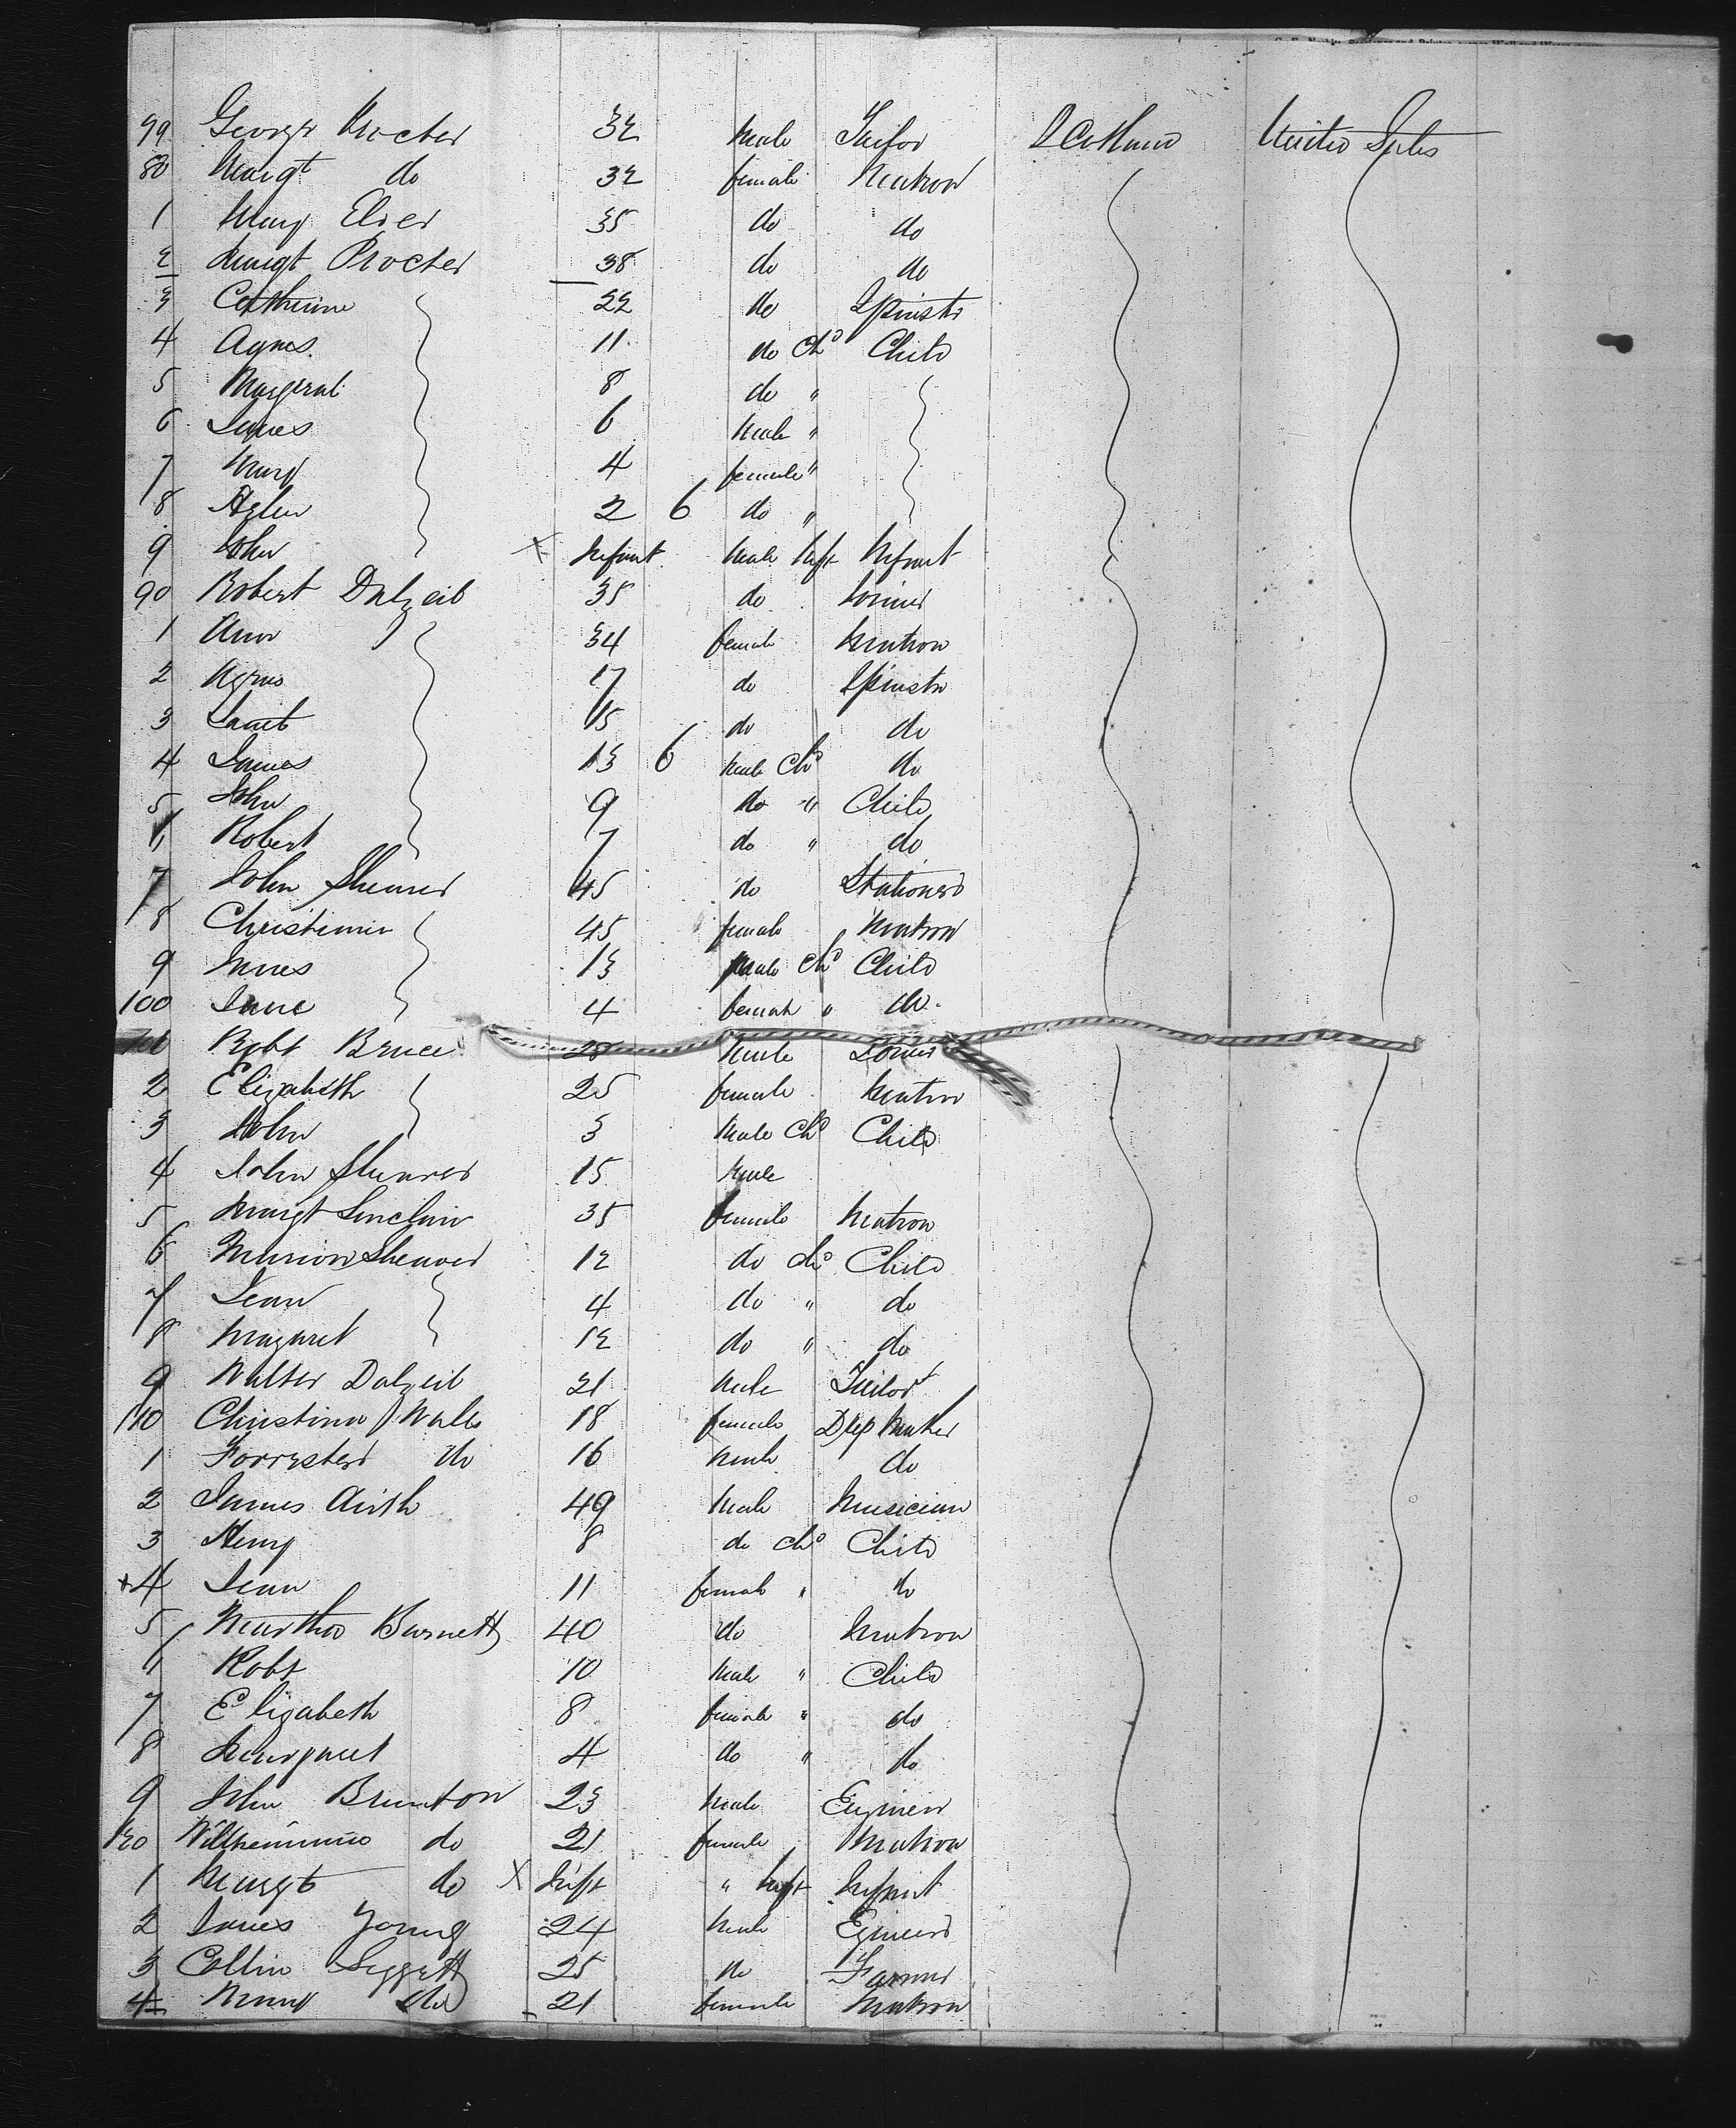 79 George Procter 32 male Tailor Scotland United States
80 Margt do 32 female Matron
1 Mary Elder 35 do do
2 Margt Procter 38 do do
3 Catherine 22 do Spinstr
4 Agnes 11 do Chd Child
5 Margerat 8 do "
6 James 6 Male "
7 Mary 4 female "
8 Helen 2 6 do "
9 John X Infant Male Inft Infant
90 Robert Dalzeil 35 do Joiner
1 Ann 34 female Matron
2 Agnes 17 do Spinstr
3 Janet 15 do do
4 James 13 6 Male Chd do
5 John 9 do " Child
6 Robert 7 do " do
7 John Shearer 45 do Stationer
8 Christinia 45 female Matron
9 James 13 Male Chd Child
100 Jane 4 female " do
101 Robt Bruce 28 Male Joiner
2 Elizabeth 25 female Matron
3 John 3 Male Chd Child
4 John Shearer 15 Male
5 Margt Sinclair 35 female Matron
6 Marion Shearer 12 do Chd Child
7 Jean 4 do " do
8 Magaret 12 do " do
9 Walter Dalzeil 21 Male Tailor
110 Christina Walls 18 female Dep Maker
1 Forrester do 16 Male do
2 James Airth 49 Male Musician
3 Henry 8 do Chd Child
+4 Jean 11 female " do
5 Martha Burnett 40 do Matron
6 Robt 10 Male " Child
7 Elizabeth 8 female " do
8 Margaret 4 do " do
9 John Brunton 23 Male Enginer
120 Wilhelmina do 21 female Matron
1 Margt do X Inft " Inft Infant
2 James Young 24 Male Egineer
3 Collin Leggett 25 do Farmer
4 Mary do 21 female Matron